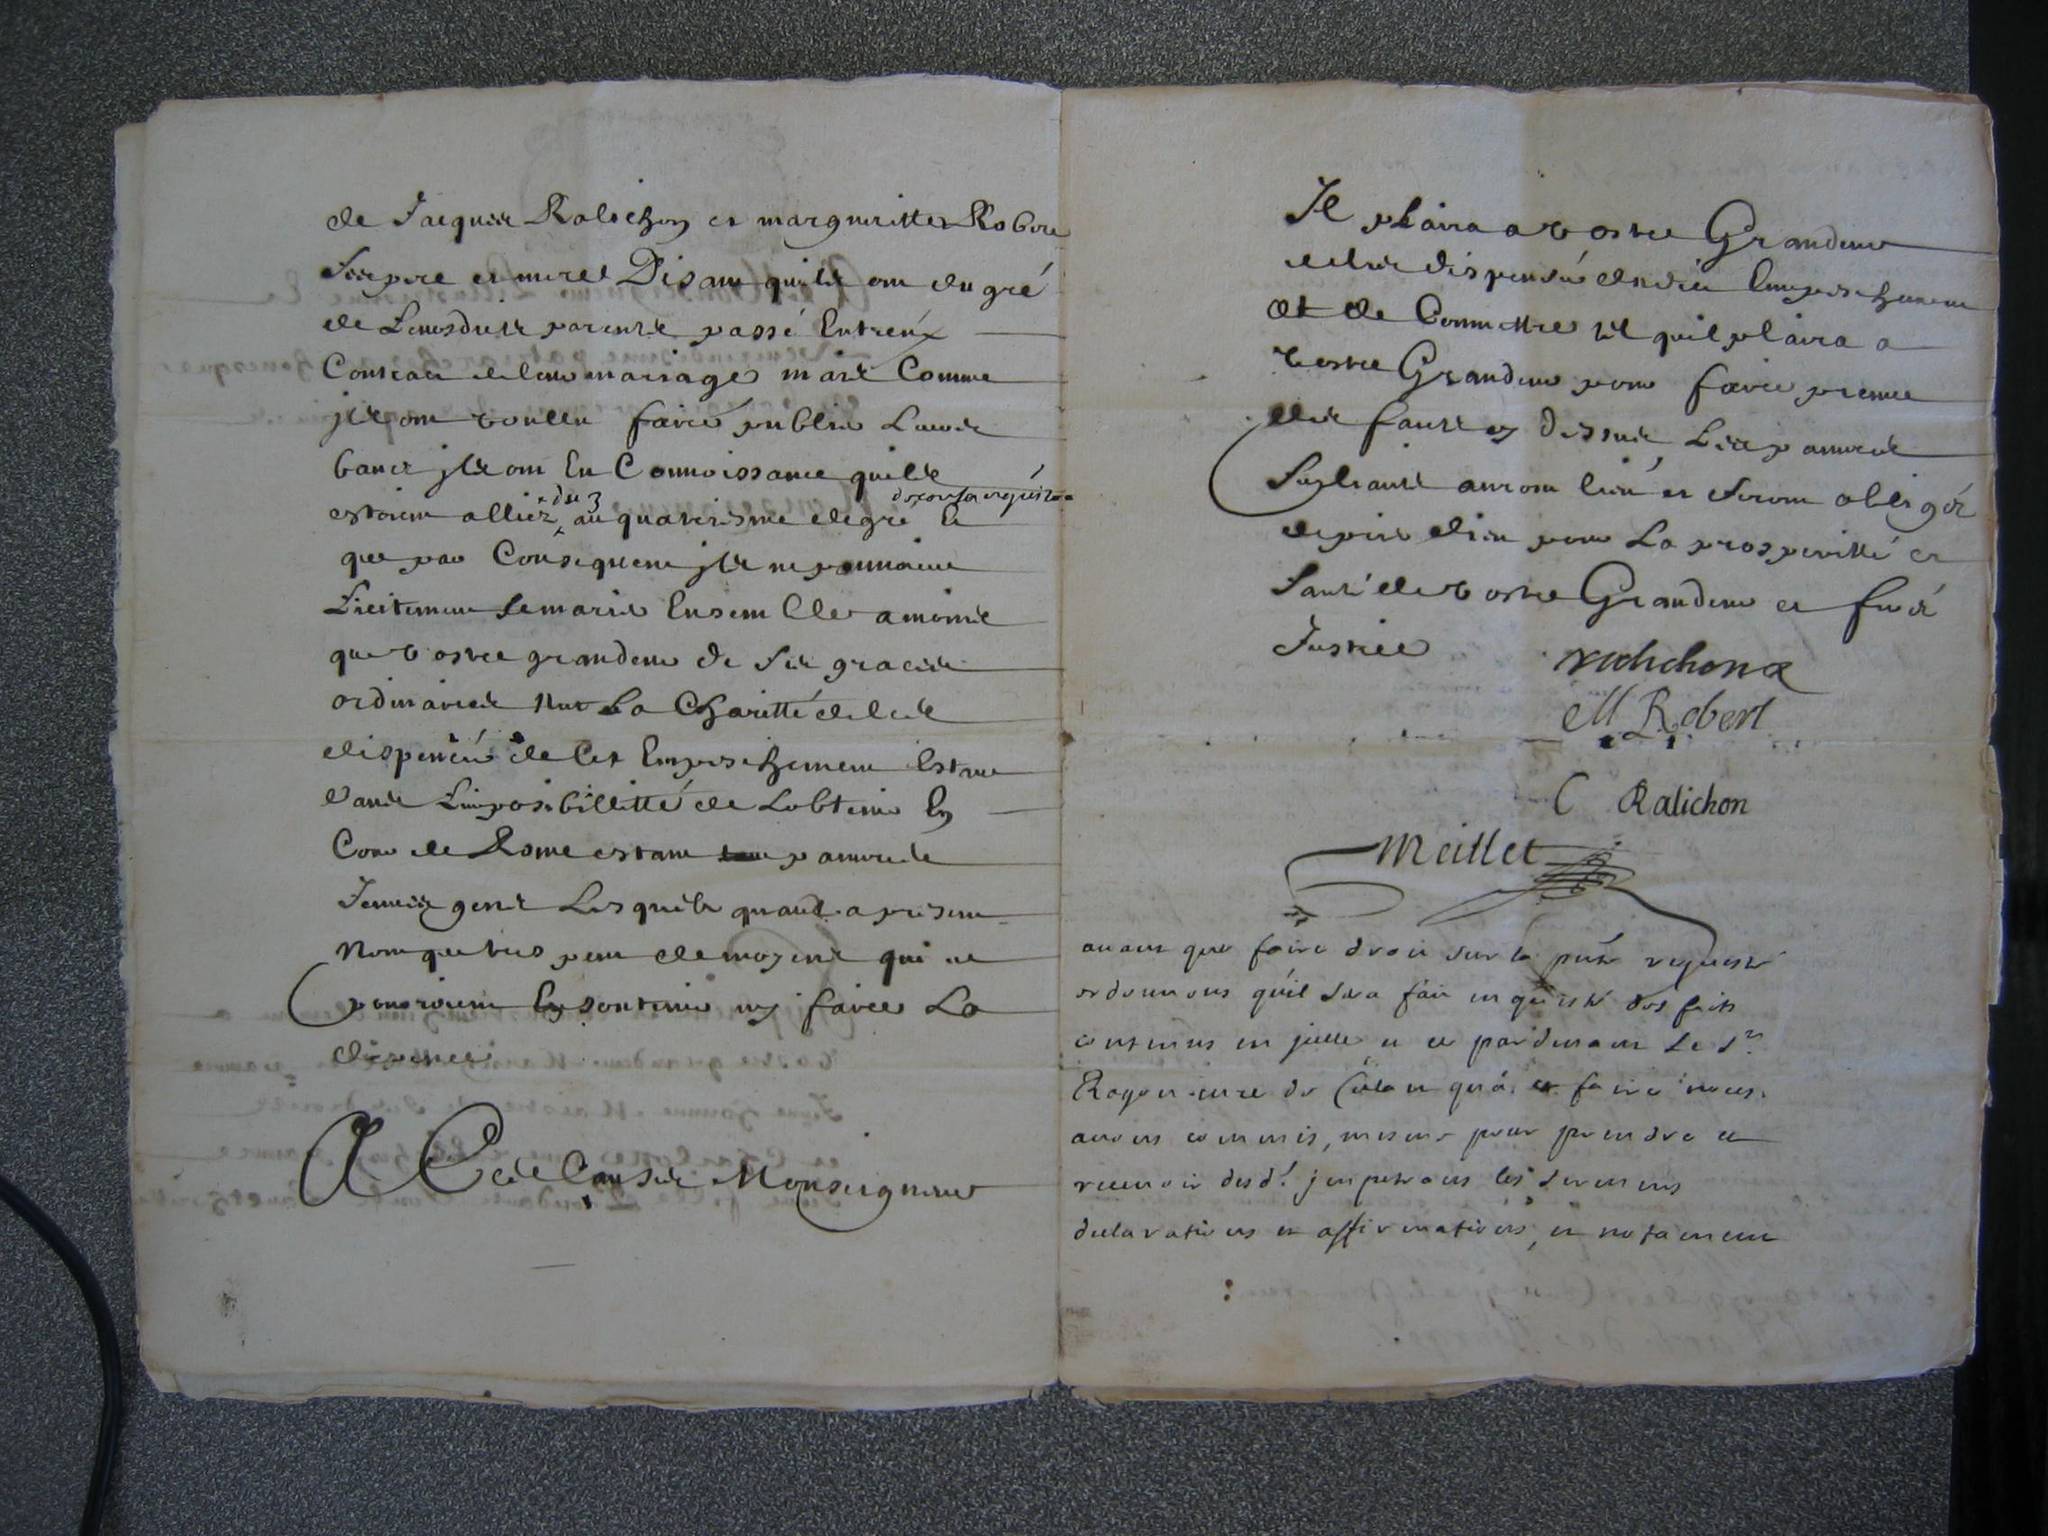 de Jacques Ralichon et margueritte Robert
ses pere et mere Disant quils ont du gré
de Leursdits parents passé Entreux
Contract de leur mariage mais Comme
jls ont voullu faire publier Leurs
bancs jls ont Eu Connoissance quils
du 3 de consanguinité
estoient alliez au quatriesme degré Et
que par Consequent jls ne pouvoient
Licitement se marier Ensemble a moins
que vostre grandeur de ses graces
ordinaires Nut La Charitté de les
dispencer de Cet Empeschement Estant
dans Limposibillitté de Lobtenir En
Cour de Rome estant pauvres
Jeunes gens Lesquels quand a present
Nont que tres peu de moyens qui ne
pourroient En soutenir ny faire La
dispence
A Ces Causes Monseigneur
Il plaira a vostre Grandeur
de les dispenser dudit Empeschement
et de Commettre tel quil plaira a
vostre Grandeur pour faire preuve
des faits cy dessus, Les pauvres
supliants auront lieu et seront obligés
de prier dieu pour La prosperitté et
santé de vostre Grandeur et ferés
Justice
ralichon
M Robert
C Ralichon
Meillet
avant que faire droit sur la pnte requeste
ordonnons quil sera fait enqueste des faits
contenus en jcelle et ce pardevant Le Sr
Rogon curé de Culan qua ce faire nous
avons commis, mesme pour prendre et
recevoir desd. jmpetrans les sermens
declarations et affirmations, et notament